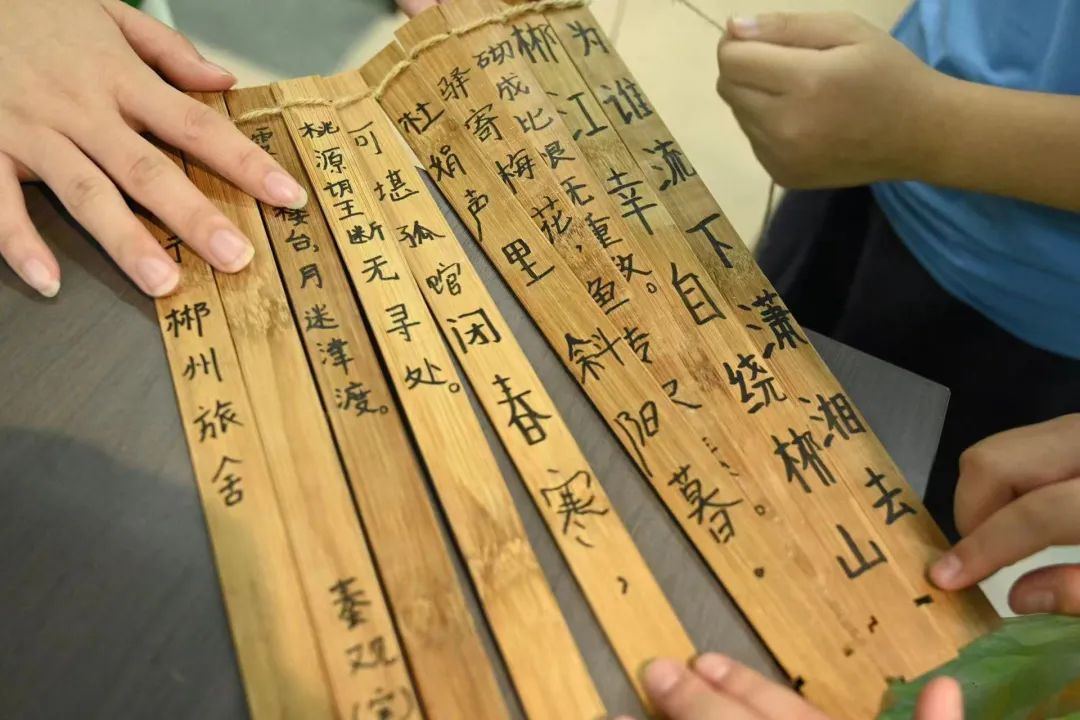 郴州旅舍
秦观(宋)
楼台,月迷津渡。
桃源望断无寻处。
可堪孤馆闭春寒,
杜鹃声里斜阳暮。
驿寄梅花,鱼传尺……。
砌成比恨无重数。
郴江幸自绕郴山……
为谁流下潇湘去